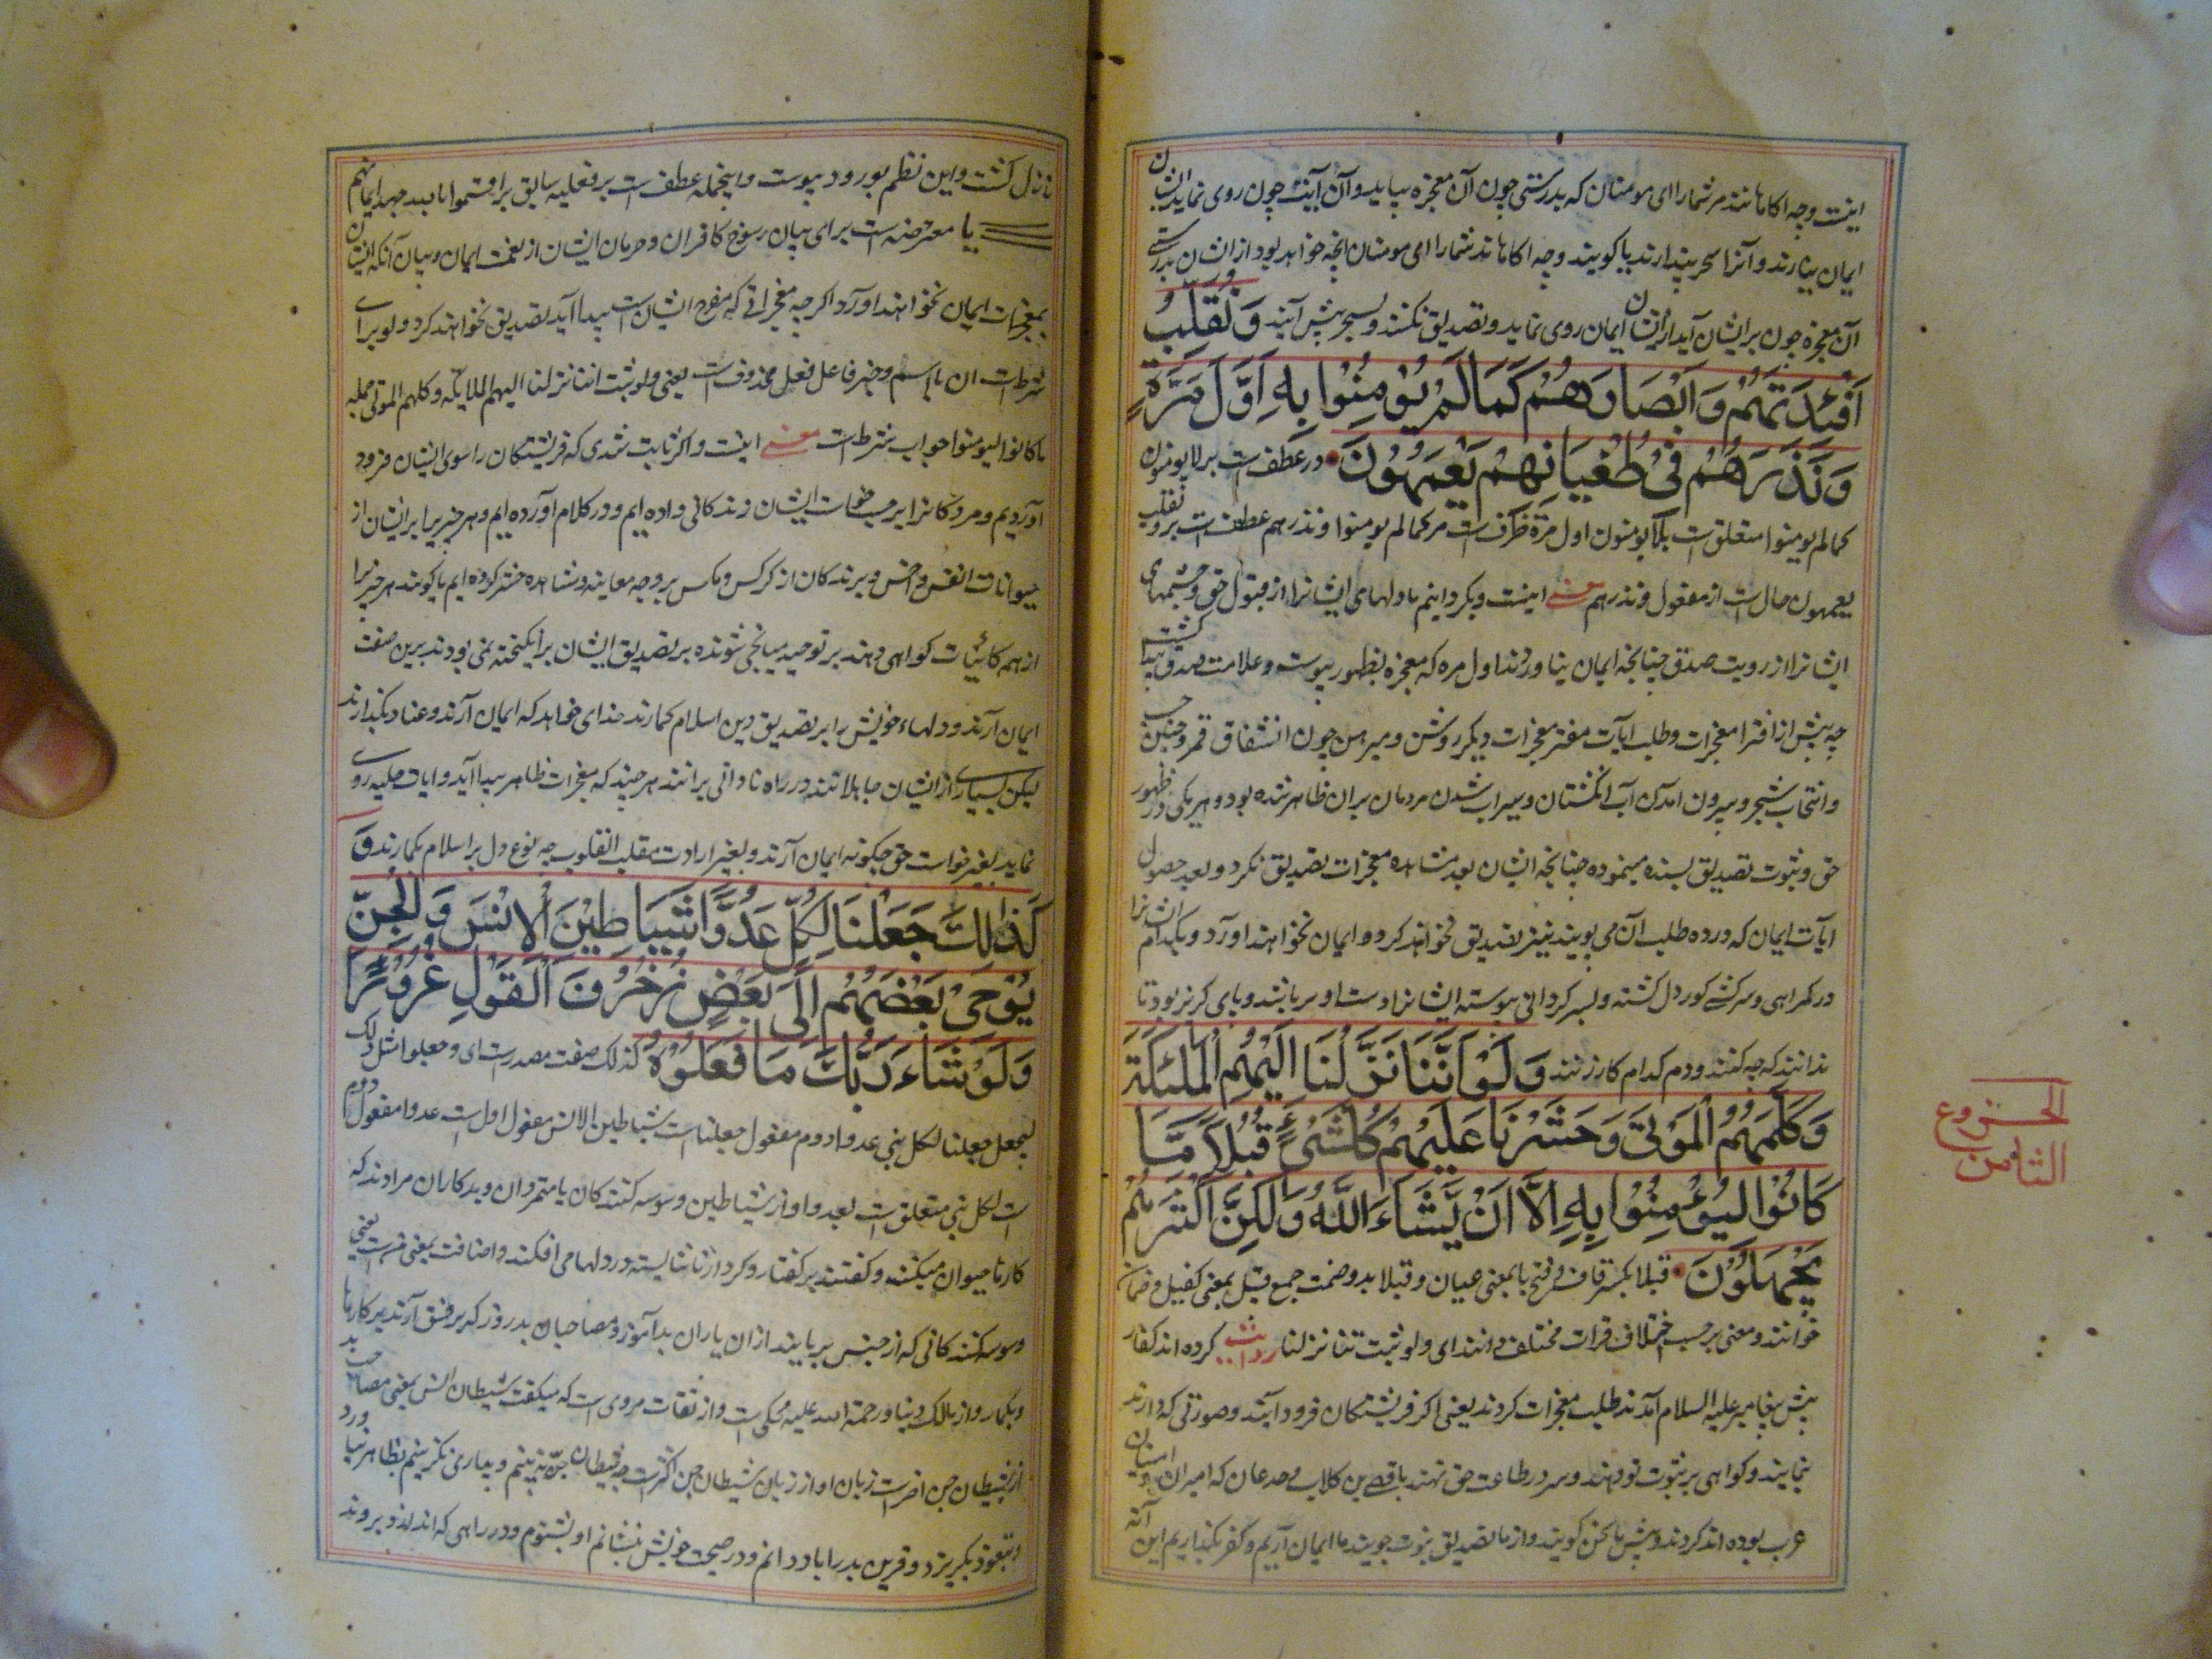 اینست وچه اکاهانند مر شمارا ای مومنان که بدرستی چون آن معجزه بیاید وآن آیت چون روی نماید ایشان
ایمان نیارند وآنرا سحر پندارند یا کویند وچه اکاهاند شمارا ای مومنان انچه خواهد بود از ایشان بدرستی
آن معجزه چون بر ایشان آید از ایشان ایمان روی نماید وتصدیق نکنند وبسحر پیش آیند وَنُقَلِّبُ
اَفْئِدَتَهُمْ وَاَبْصَارَهُمْ كَمَا لَمْ يُؤْمِنُوْا بِهٖ اَوَّلَ مَرَّةٍ
وَنَذَرُهُمْ فِىْ طُغْيَانِهِمْ يَعْمَهُوْنَ در عطف است بر لا یومنون
کما لم یومنوا متعلق است بلا یومنون اول مرة ظرف است مر کما لم یومنوا ونذرهم عطف است بر ونقلب
یعمهون حال است از مفعول ونذرهم معنی اینست وبکردانیم ما دلهای ایشانرا از قبول حق وچشمهای
ایشانرا از رویت صدق چنانچه ایمان نیاوردند اول مره که معجزه بظهور پیوست وعلامت صدق پیدا کشت
چه پیش از افترا معجزات وطلب آیات معجزات دیکر روشن ومبرهن چون انشقاق قمر وحنین
وانتخاب شجر وبیرون آمدن آب از انکشتان وسیراب شدن مردمان بران ظاهر شده بود وهر یکی در ظهور
حق وثبوت تصدیق بسنده مینموده چنانچه ایشان بعد مشاهده معجزات تصدیق نکرد وبعد حصول
آیات ایمان که در ده طلب آن می پویند نیز تصدیق نخواهد کرد وایمان نخواهند اورد وبکذاریم ایشانرا
در کمراهی وسرکشی کور دل کشته
ندانند که چه کنند ودم کدام کار زنند وَلَوْ اَنَّنَا نَزَّلْنَا اِلَيْهِمُ الْمَلٰئِكَةَ
وَكَلَّمَهُمُ الْمَوْتٰى وَحَشَرْنَا عَلَيْهِمْ كُلَّ شَىْءٍ قُبُلًا مَّا
كَانُوْا لِيُؤْمِنُوْا بِهٖ اِلَّا اَنْ يَّشَاءَ اللّٰهُ وَلٰكِنَّ اَكْثَرَهُمْ
يَجْهَلُوْنَ قبلا بکسر قاف وفتح با بمعنی عیان وقبلا بدو ضمت جمع قبیل بمعنی کفیل وضمان
خوانند ومعنی بر حسب اختلاف قرات مختلف دانند ای ولو ثبت اننا نزلنا روایت کرده اند کفار
پیش پیغامبر علیه السلام آمدند طلب معجزات کردند یعنی اکر فریشتکان فرود آیند وصورتی که دارند
بنمایند وکواهی بر نبوت تو دهند وسر در طاعت حق نهند یا قصی بن کلاب وجدعان که امیران
عرب بوده اند کردند وپیش ما سخن کویند واز ما تصدیق نبوت جویند ما ایمان آریم وکفر بکذاریم این آیة
الجزوع
الثامن
نازل کشت واین نظم بورود پیوست واینجمله عطف است بر فعلیه سابق برا قسموا بالله جهد ایمانهم
یا معترضه است برای بیان رسوخ کافران وحرمان ایشان از نعمت ایمان وبیان آنکه ایشان
بمعجزات ایمان نخواهند اورد اکرچه معجزاتی که مقترح ایشان است پیدا آید تصدیق نخواهند کرد ولو برای
شرط است ان با اسم وخبر فاعل فعل محذوف است یعنی ولو ثبت اننا نزلنا الیهم الملایکه وکلمهم الموتی جمله
ما کانوا لیومنوا جواب شرط است معنی اینست واکر ثابت شدی که فریشتکان را سوی ایشان فرود
آوردیم ومردکانرا بر حسب ایشان زندکانی داده ایم ودر کلام آورده ایم وهر چیزیرا بر ایشان از
حیوانات انفس وجنس وپرندکان از کرکس ومکس بر وجه معاینه ومشاهده حشر کرده ایم یا کویند هر چیزیرا
از همه کائنات کواهی دهند بر توحید بر تصدیق ایشان بر انکیخته نمی بودند برین صفت
ایمان آرند ودلهاء خویش را بر تصدیق دین اسلام کمارند خدای خواهد که ایمان آرند وعناد بکذارند
لیکن بسیاری از ایشان جاهلانند در راه نادانی برانند هر چند که معجزات ظاهر پیدا آید وایات جلیه روی
نماید بغیر خواست حق چکونه ایمان آرند وبغیر ارادت مقلب القلوب چه نوع دل بر اسلام بکمارند وَ
كَذٰلِكَ جَعَلْنَا لِكُلِّ عَدُوًّا شَيَاطِيْنَ الْاِنْسِ وَالْجِنِّ
يُوْحِىْ بَعْضُهُمْ اِلٰى بَعْضٍ زُخْرُفَ الْقَوْلِ غُرُوْرًا
وَلَوْ شَاءَ رَبُّكَ مَا فَعَلُوْهُ کذلک صفت مصدر است ای وجعلوا مثل ذلک
لجعل جعلنا لکل نبی عدوا دوم مفعول جعلنا است شیاطین الانس مفعول اول است عدوا مفعول دوم
است لکل نبی متعلق است بعدوا واز شیاطین وسوسه کنندکان یا متمردان وبدکاران مرادند که
کارها حیوان میکنند وکفتند بر کفتار وکردار ناشایسته در دلها می افکند واضافت بمعنی من است یعنی
وسوسه کنندکانی که از جنس بر یابند از ان یاران بدآموز ومصاحبان بدروز که بر فسق آرند بر کارها بد
وبکمارد واز مالک دینار رحمة الله علیه محکی است واز ثقات مروی است که میکفت شیطان انس یعنی مصاحب
از شیطان جن اضر است زیان او از زیان شیطان جن اکثر است چه شیطان جن نه بینم وبیداری نکزینم بظاهر نیاورد
وبتعوذ بکریزد وقرین بد را یاد دانم ودر صحبت خویش بنشانم او بشنوم ودر راهی که اندازد بروند